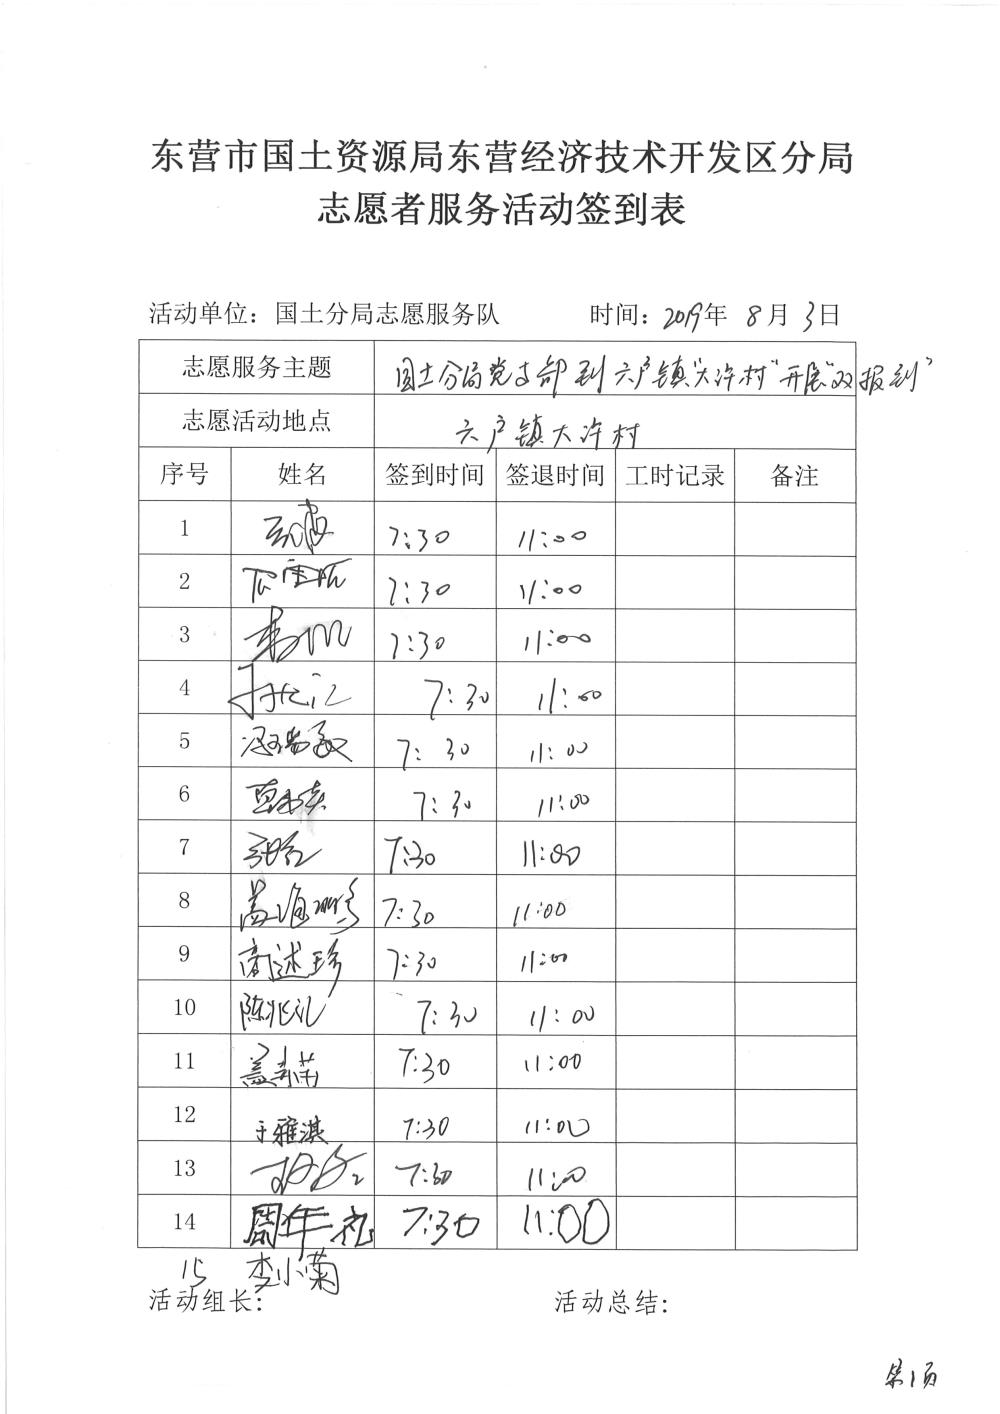 东营市国土资源局东营经济技术开发区分局
志愿者服务活动签到表
活动单位：国土分局志愿服务队 时间：2019年 8月 3日
志愿服务主题 国土分局党支部到六户镇“大许村”开展“双报到”
志愿活动地点 六户镇大许村
序号 姓名 签到时间 签退时间 工时记录 备注
1 7:30 11:00
2 7:30 11:00
3 7:30 11:00
4 7:30 11:00
5 7:30 11:00
6 7:30 11:00
7 7:30 11:00
8 7:30 11:00
9 商述珍 7:30 11:00
10 陈兆礼 7:30 11:00
11 7:30 11:00
12 于雅淇 7:30 11:00
13 7:30 11:00
14 周年礼 7:30 11:00
15 李小菊
活动组长： 活动总结：
第1页